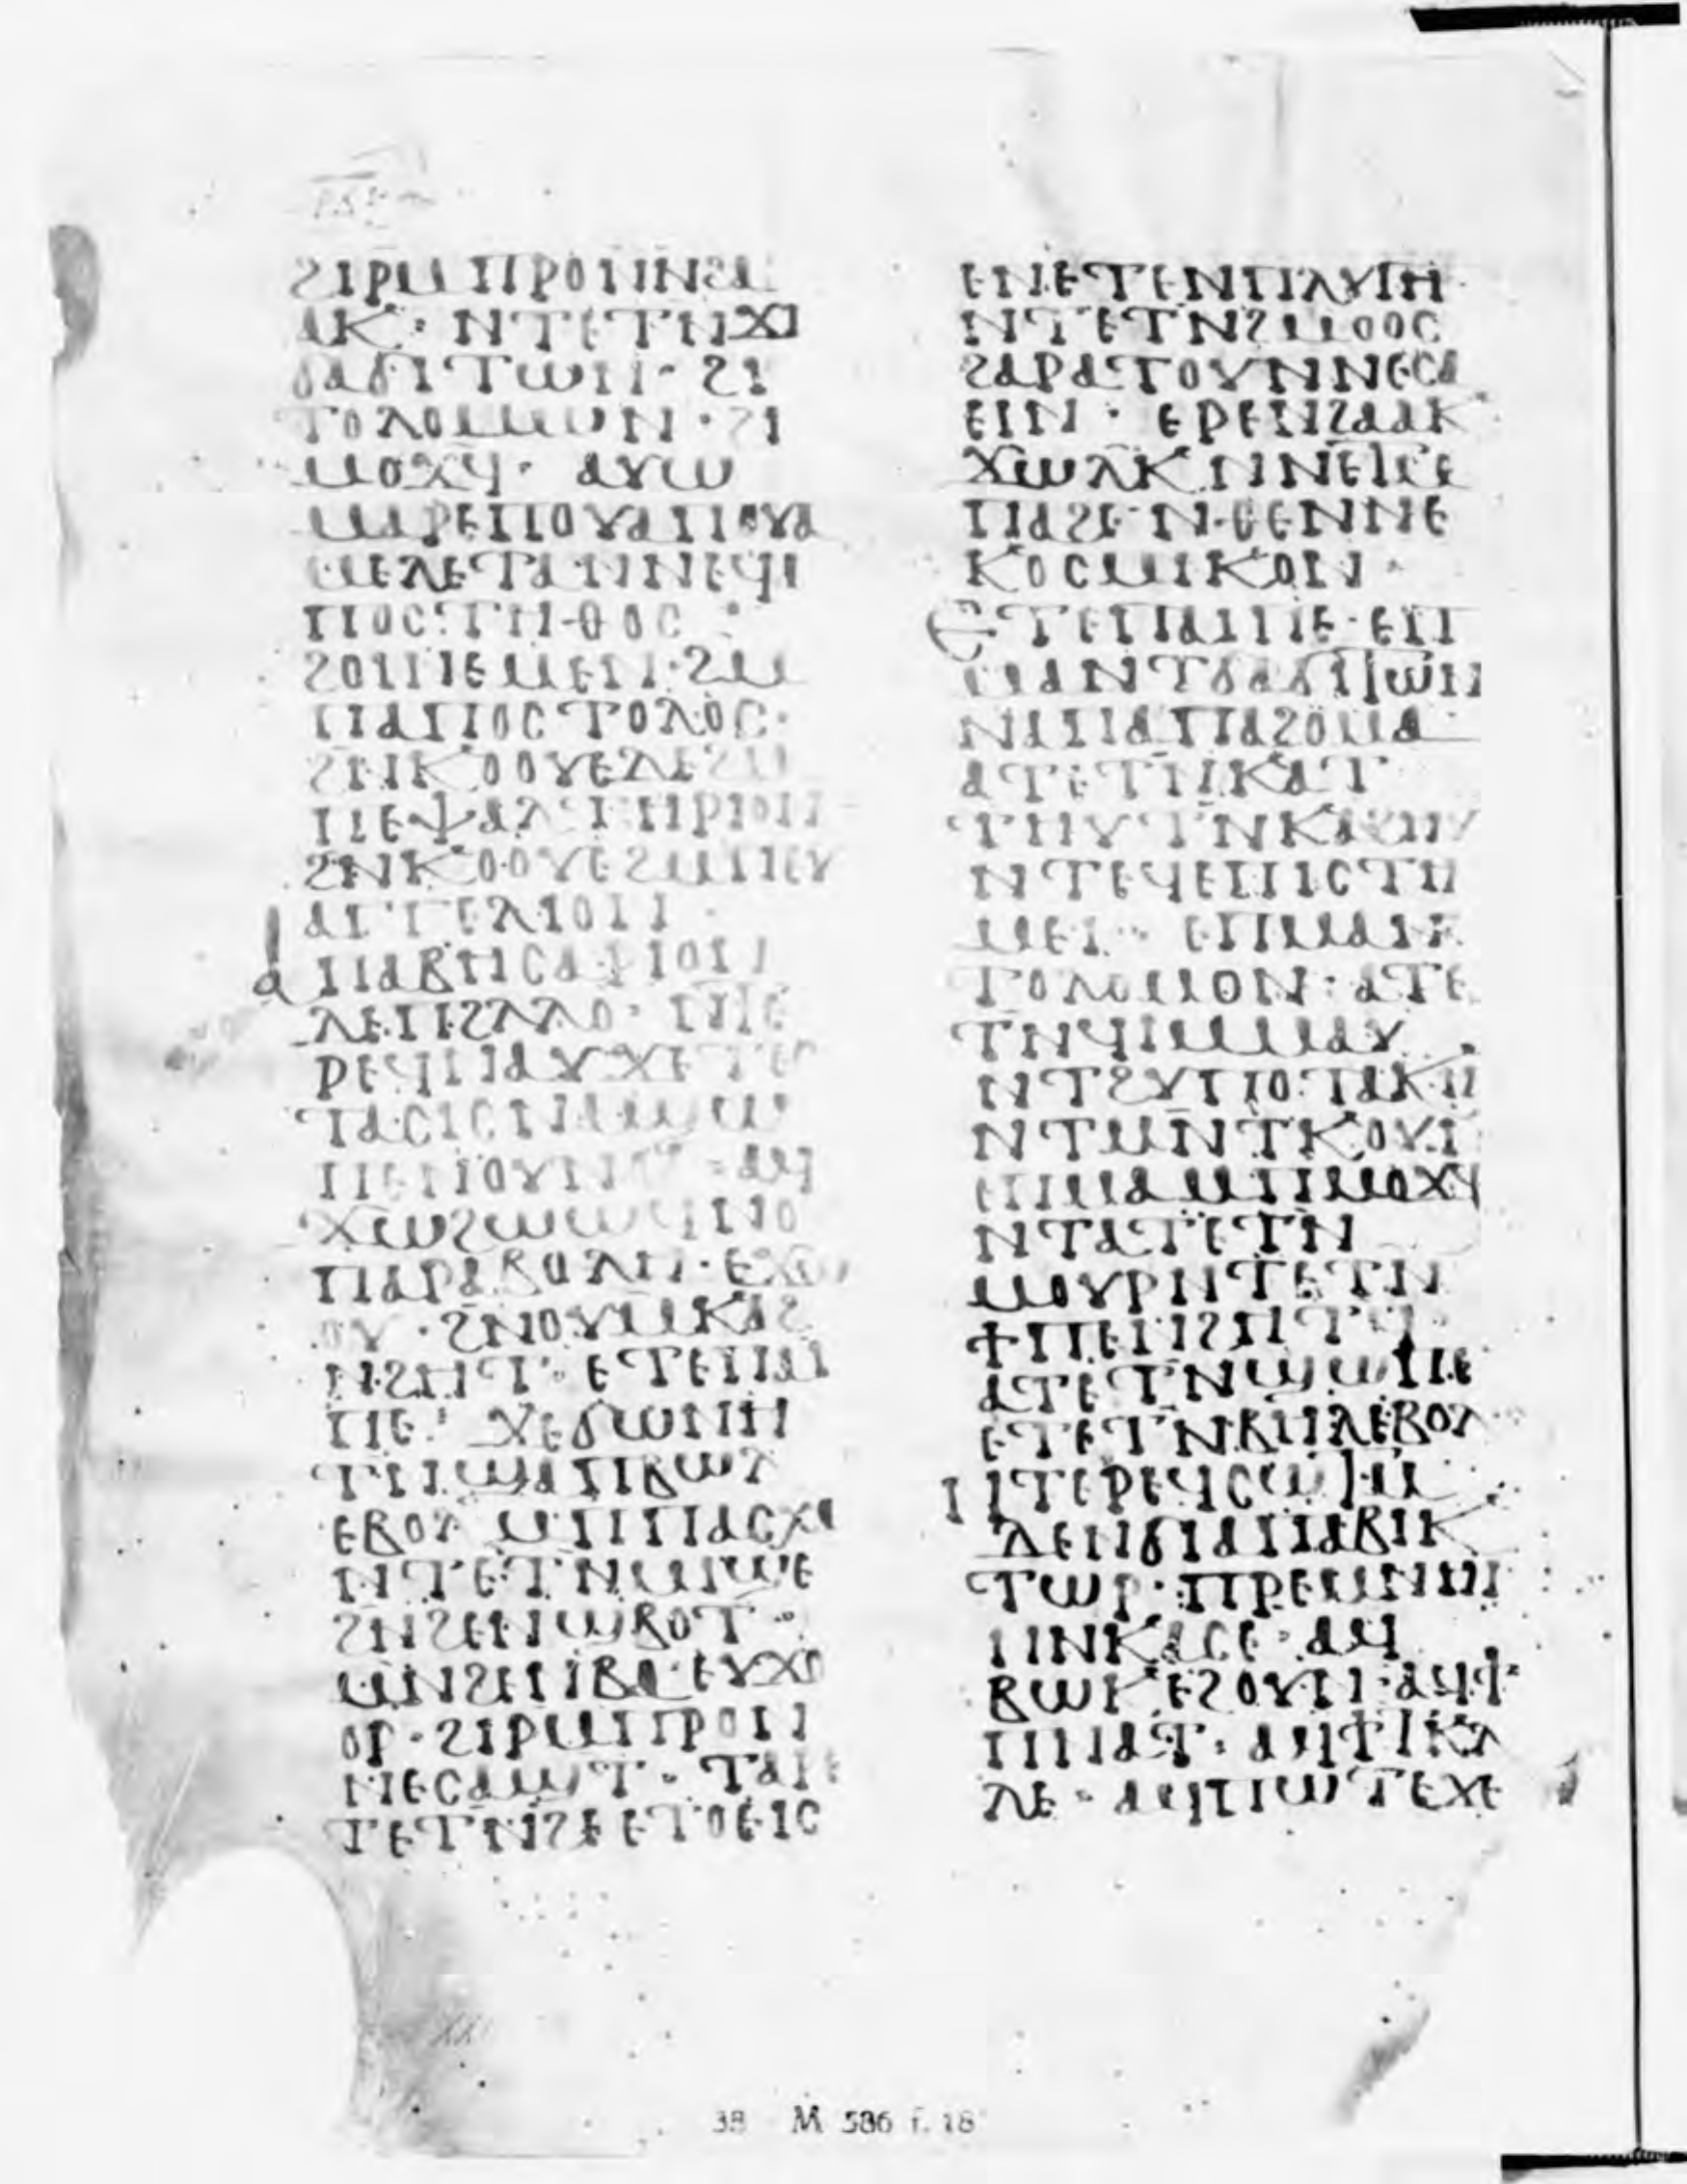 ϩⲓⲣⲙⲡⲣⲟⲛⲛϩⲁ
ⲁⲕ· ⲛⲧⲉⲧⲛϫⲓ
ϭⲁϭⲓⲧⲱⲛ· ϩⲓ
ⲧⲟⲗⲟⲙⲱⲛ· ϩⲓ
ⲙⲟϫϥ· ⲁⲩⲱ
ⲙⲁⲣⲉⲡⲟⲩⲁⲡⲟⲩⲁ
ⲙⲉⲗⲉⲧⲁⲛⲛⲉϥⲁ
ⲡⲟⲥⲧⲏⲑⲟⲥ
ϩⲟⲓⲛⲉⲙⲉⲛ·ϩⲙ
ⲡⲁⲡⲟⲥⲧⲟⲗⲟⲥ·
ϩⲛⲕⲟⲟⲩⲉⲇⲉϩⲙ
ⲡⲉⲯⲁⲗⲧⲏⲣⲓⲟⲛ
ϩⲛⲕⲟⲟⲩⲉϩⲙⲡⲉⲩ
ⲁⲅⲅⲉⲗⲓⲟⲛ
ⲁⲡⲁⲃⲏⲥⲁⲣⲓⲟⲛ
ⲇⲉⲡϩⲗⲗⲟ· ⲡⲣⲉ
ⲣⲉϥⲛⲁⲩⲭⲉ
ⲡⲉⲛⲟⲩⲛ ⲁϥ
ϫⲱϩⲱⲱϥⲛⲟ
ⲡⲁⲣⲁⲃⲟⲗⲏ· ⲉϫⲱ
ⲟⲩ· ϩⲛⲟⲩⲙⲕⲁϩ
ⲛϩⲏⲧ· ⲉⲧⲉⲡⲁⲓ
ⲡⲉ· ϫⲉϭⲱⲛⲏ
ⲧⲛϣⲁⲡⲃⲱⲗ
ⲉⲃⲟⲗ ⲙⲡⲡⲁⲥⲭⲁ
ⲛⲧⲉⲧⲛⲙⲓϣⲉ
ϩⲛϩⲉⲛϣⲃⲟⲧ·
ⲙⲛϩⲉⲛⲃⲁ·ⲉⲩϫⲟ
ⲟⲣ· ϩⲓⲣⲙⲡⲣⲟⲛ
ⲛⲉⲥⲁϣⲧ· ⲧⲁⲓⲉ
ⲧⲉⲧⲛϩⲉ ⲉⲧⲟⲉⲓⲥ
ⲉⲛⲉⲧⲉⲛⲡⲗⲩⲙⲏ
ⲛⲧⲉⲧⲛϩⲙⲟⲟⲥ
ϩⲁⲣⲁⲧⲟⲩⲛⲛⲉⲥⲁ
ⲉⲓⲛ· ⲉⲣⲉⲛϩⲁⲁⲕ
ϫⲱⲗⲕ ⲛⲛⲉⲓⲉ
ⲡⲁϩⲉ ⲛⲑⲉⲛⲛⲉ
ⲕⲟⲥⲙⲓⲕⲟⲛ
ⲉⲧⲉⲡⲁⲓⲡⲉ·ⲉⲡ
ⲙⲁⲛⲧϭⲁϭⲓⲧⲱⲛ
ⲛⲁⲡⲁⲡⲁϩⲟⲙⲁ
ⲁⲧⲉⲧⲛⲕⲁⲧ
ⲧⲏⲩⲧⲛⲕⲁϩⲏⲩ
ⲛⲧⲉϥⲉⲡⲓⲥⲧⲏ
ⲙⲉⲓ· ⲉⲡⲙⲁⲛ
ⲧⲟⲗⲟⲙⲟⲛ· ⲁⲧⲉ
ⲧⲛϥⲓⲙⲙⲁⲩ
ⲛⲧϩⲩⲡⲟⲧⲁⲕⲏ
ⲛⲧⲙⲛⲧⲕⲟⲩⲓ
ⲉⲡⲙⲁ ⲙⲡⲙⲟϫϥ
ⲛⲧⲁⲧⲉⲧⲛ
ⲙⲟⲩⲣⲛⲧⲉⲧⲛ
ϯⲡⲉⲛϩⲏⲧϥ·
ⲁⲧⲉⲧⲛϣⲱⲡⲉ
ⲉⲧⲉⲧⲛⲕⲏⲗⲉⲃⲟⲗ
ⲛⲧⲉⲣⲉϥⲥⲱⲧⲙ
ⲇⲉⲛϭⲓⲁⲡⲁⲃⲓⲕ
ⲧⲱⲣ· ⲡⲣⲉⲙⲛⲙⲛ
ⲛⲕⲁⲥⲉ· ⲁϥ
ⲃⲱⲕ ⲉϩⲟⲩⲛ·ⲁϥϥⲓ
ⲡⲛⲁⲧ· ⲁϥϥⲓⲕⲗ
ⲗⲉ· ⲁϥⲡⲱⲧⲉϫⲉ
38 M 586 f. 18